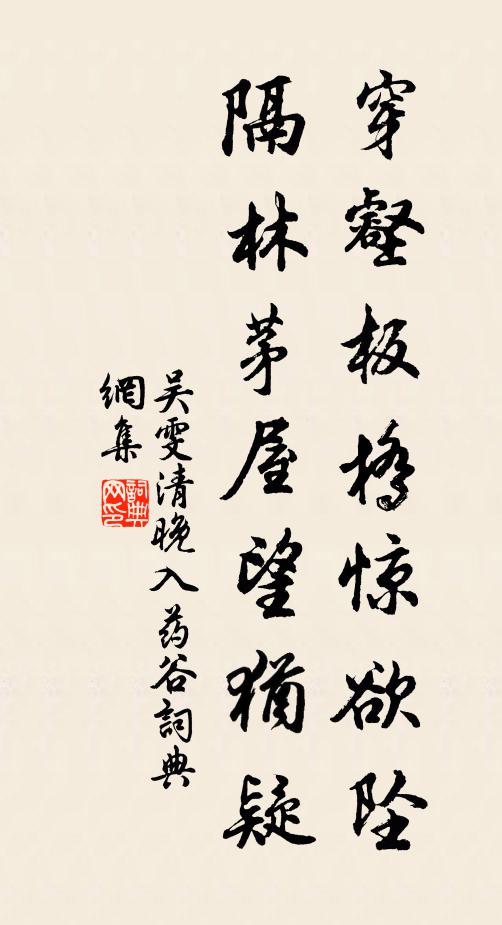 穿壑板桥惊欲坠
隔林茅屋望犹疑
吴雯清晚入药谷詞典
網集
詞典
网印